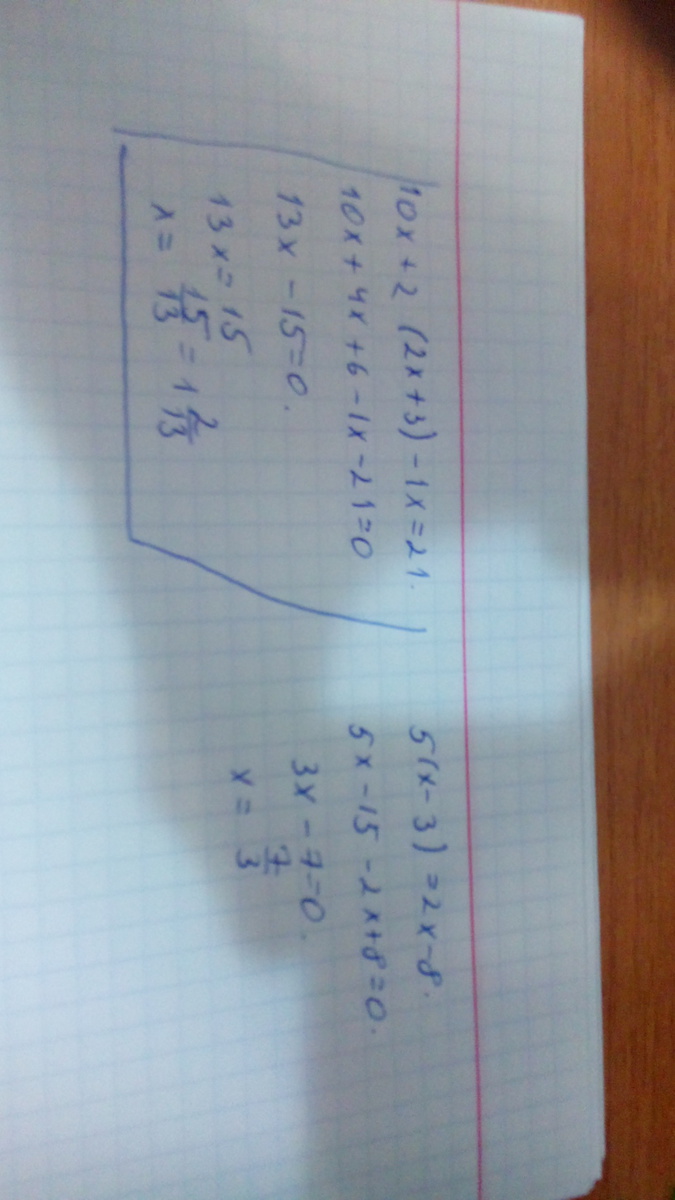 10x + 2 (2x+3) - 1x = 21.
10x + 4x + 6 - 1x - 21 = 0
13x - 15 = 0.
13x = 15
x = 15/13 = 1 2/13
5(x - 3) = 2x - 8.
5x - 15 - 2x + 8 = 0.
3x - 7 = 0.
x = 7/3